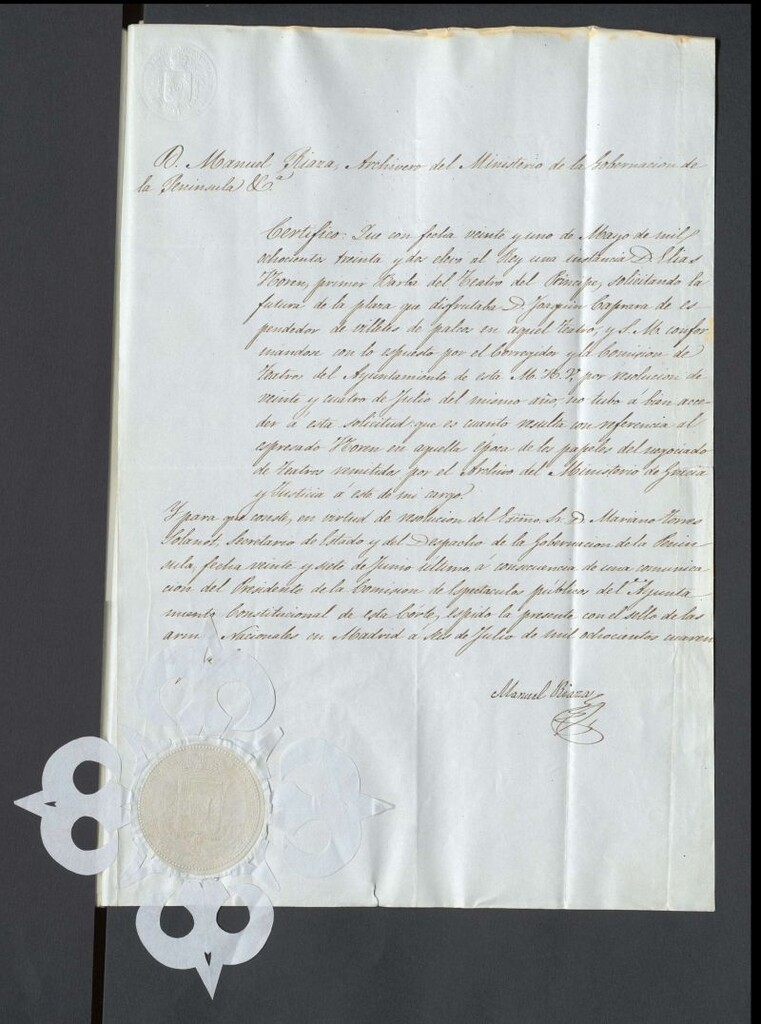 D. Manuel Riaza, Archivero del Ministerio de la Gobernacion de
la Peninsula &c.ª
Certifico: Que con fecha veinte y uno de Mayo de mil
ochocientos treinta y dos elevó al Rey una instancia D. Elias
Noren, primer Barba del Teatro del Principe, solicitando la
futura de la plaza que disfrutaba D. Joaquin Caprara de es
pendedor de villetes de palcos en aquel Teatro, y S. M. confor
mandose con lo espuesto por el Corregidor y la Comision de
Teatros del Ayuntamiento de esta M. H. V. por resolucion de
veinte y cuatro de Julio del mismo año, no tubo á bien acce
der á esta solicitud: que es cuanto resulta con referencia al
espresado Noren en aquella época de los papeles del negociado
de Teatros remitidos por el Archivo del Ministerio de Gracia
y Justicia á este de mi cargo.
Y para que conste, en virtud de resolucion del Escmo. Sr. D. Mariano Torres
Solanot, Secretario de Estado y del Despacho de la Gobernacion de la Penin
sula, fecha veinte y siete de Junio ultimo, á consecuencia de una comunica
cion del Presidente de la Comision de Espectaculos públicos del Ayunta
miento Constitucional de esta Corte, espido la presente con el sello de las
arm Nacionales en Madrid á seis de Julio de mil ochocientos cuaren
Manuel Riaza